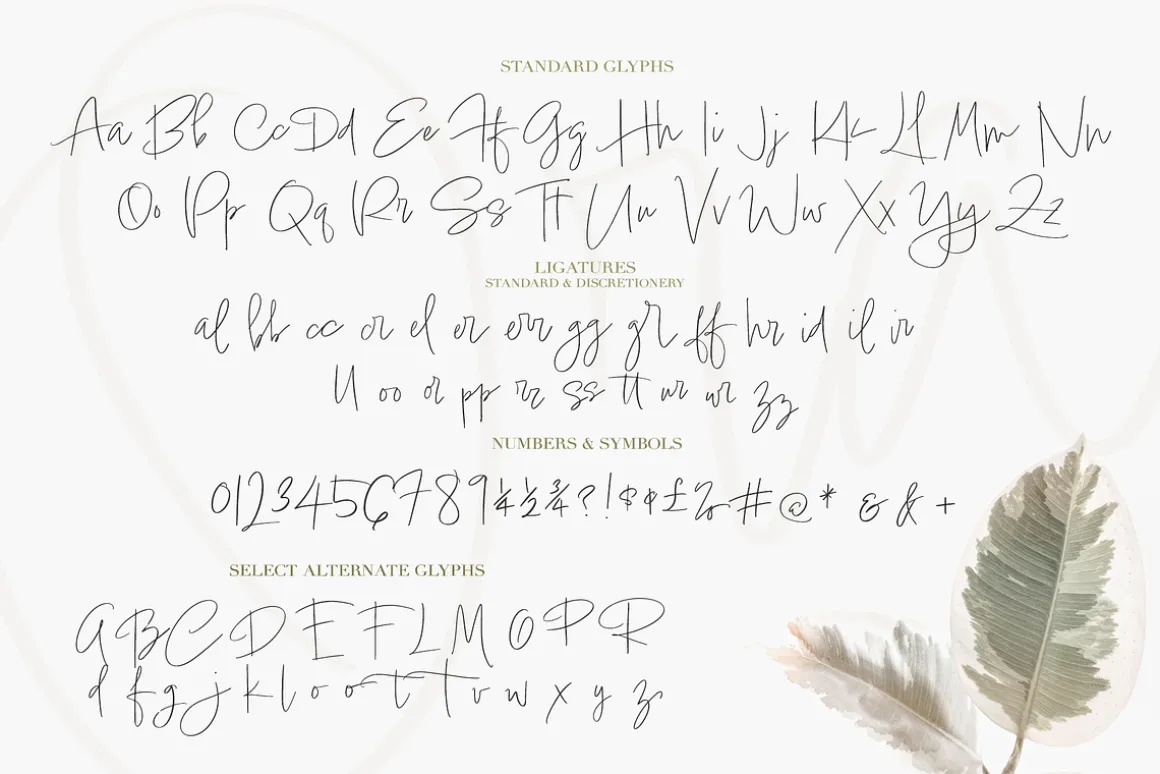 STANDARD GLYPHS
Aa Bb Cc Dd Ee Ff Gg Hh Ii Jj Kk Ll Mm Nn
Oo Pp Qq Rr Ss Tt Uu Vv Ww Xx Yy Zz
LIGATURES
STANDARD & DISCRETIONERY
al bb cc cr el er err gg gr ff hr id il ir
ll oo or pp rr ss tt ur wr zz
NUMBERS & SYMBOLS
0123456789 ¼ ½ ¾ ? ! $ ¢ £ # @ * & & +
SELECT ALTERNATE GLYPHS
A B C D E F L M O P R
d f g j k l o o t t v w x y z